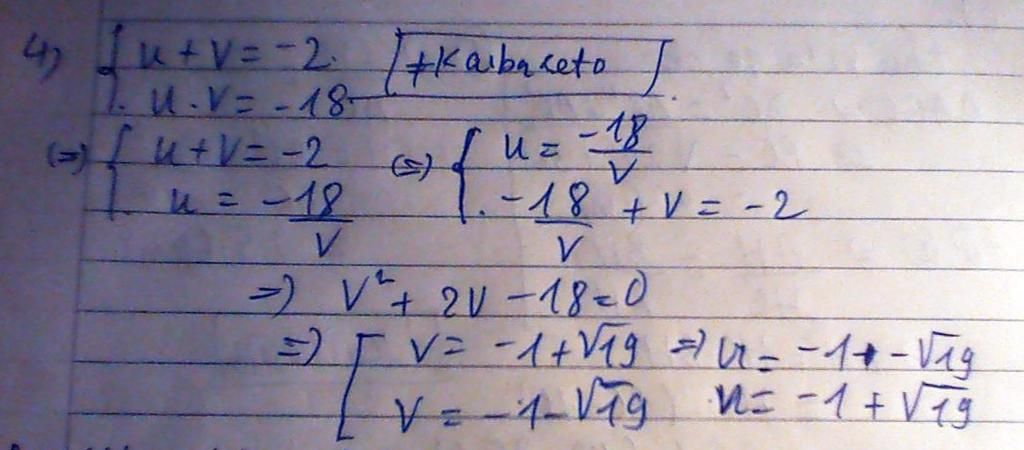 4) { u + v = -2. [≠Kaibaseto]
. u . v = -18.
(=) { u + v = -2 (=) { u = -18/v
u = -18/v . -18/v + v = -2
=) v² + 2v - 18 = 0
=) [ v = -1 + √19 =) u = -1 - √19
v = -1 - √19 u = -1 + √19